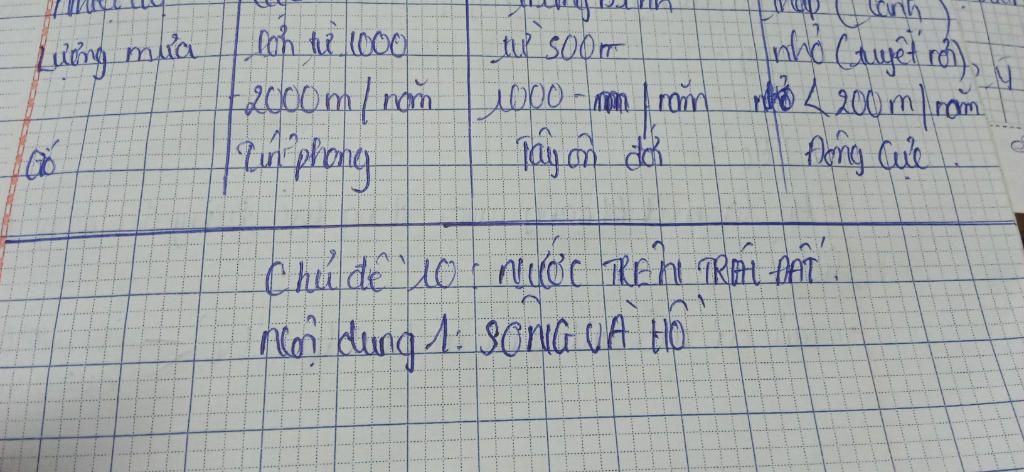 thấp (lạnh)
Lượng mưa lớn từ 1000 từ 500m nhỏ (tuyết rơi),
-2000m/năm 1000 - /năm < 200m/năm
Gió Tín phong Tây ôn đới Đông Cực.
Chủ đề 10: NƯỚC TRÊN TRÁI ĐẤT.
Nội dung 1: SÔNG VÀ HỒ